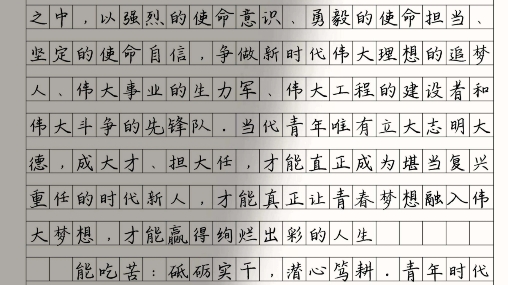 之中，以强烈的使命意识、勇毅的使命担当、
坚定的使命自信，争做新时代伟大理想的追梦
人、伟大事业的生力军、伟大工程的建设者和
伟大斗争的先锋队．当代青年唯有立大志明大
德，成大才、担大任，才能直正成为堪当复兴
重任的时代新人，才能真正让青春梦想融入伟
大梦想，才能赢得绚烂出彩的人生
能吃苦：砥砺实干，潜心笃耕．青年时代